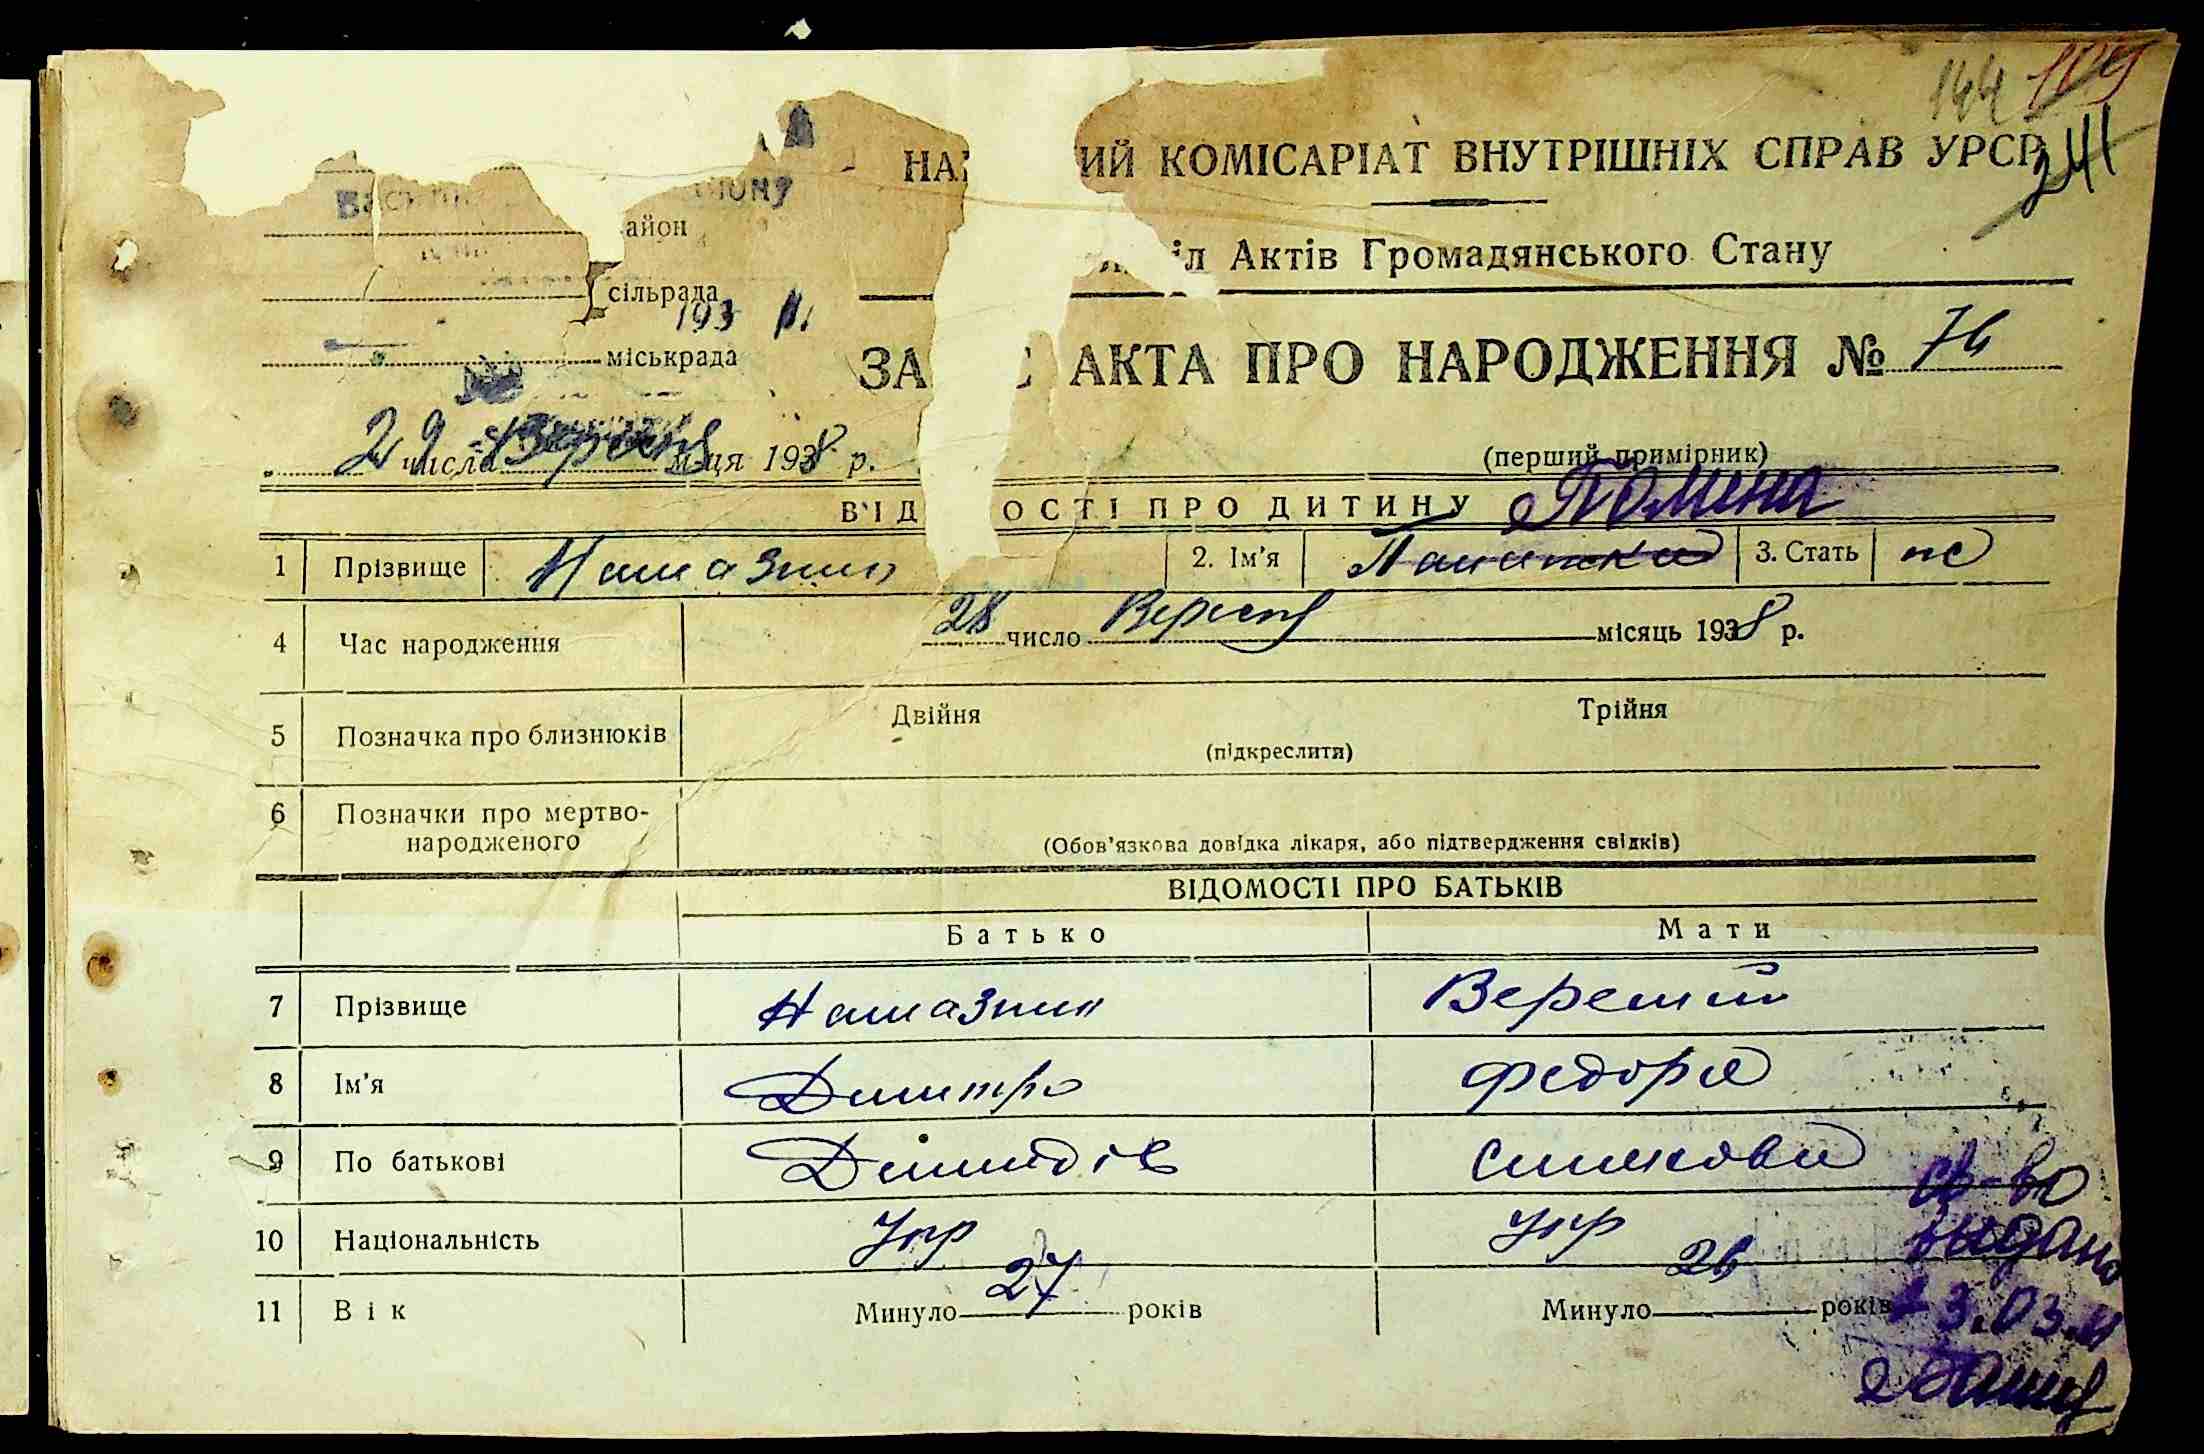 144 109
241
НА ИЙ КОМІСАРІАТ ВНУТРІШНІХ СПРАВ УРСР
айон
іл Актів Громадянського Стану
сільрада
193
міськрада
ЗА С АКТА ПРО НАРОДЖЕННЯ № 76
29 числа Вересня м-ця 1938 р.
(перший примірник)
ВІД ОСТІ ПРО ДИТИНУ
1 Прізвище Намазний 2. Ім'я 3. Стать ж
4 Час народження 28 число Вересня місяць 1938 р.
5 Позначка про близнюків Двійня Трійня
(підкреслити)
6 Позначки про мертво-
народженого
(Обов'язкова довідка лікаря, або підтвердження свідків)
ВІДОМОСТІ ПРО БАТЬКІВ
Батько Мати
7 Прізвище Намазний
8 Ім'я Дмитро Федора
9 По батькові
10 Національність Укр Укр
11 Вік Минуло 27 років Минуло 26 років
св-во
видано
3.03.